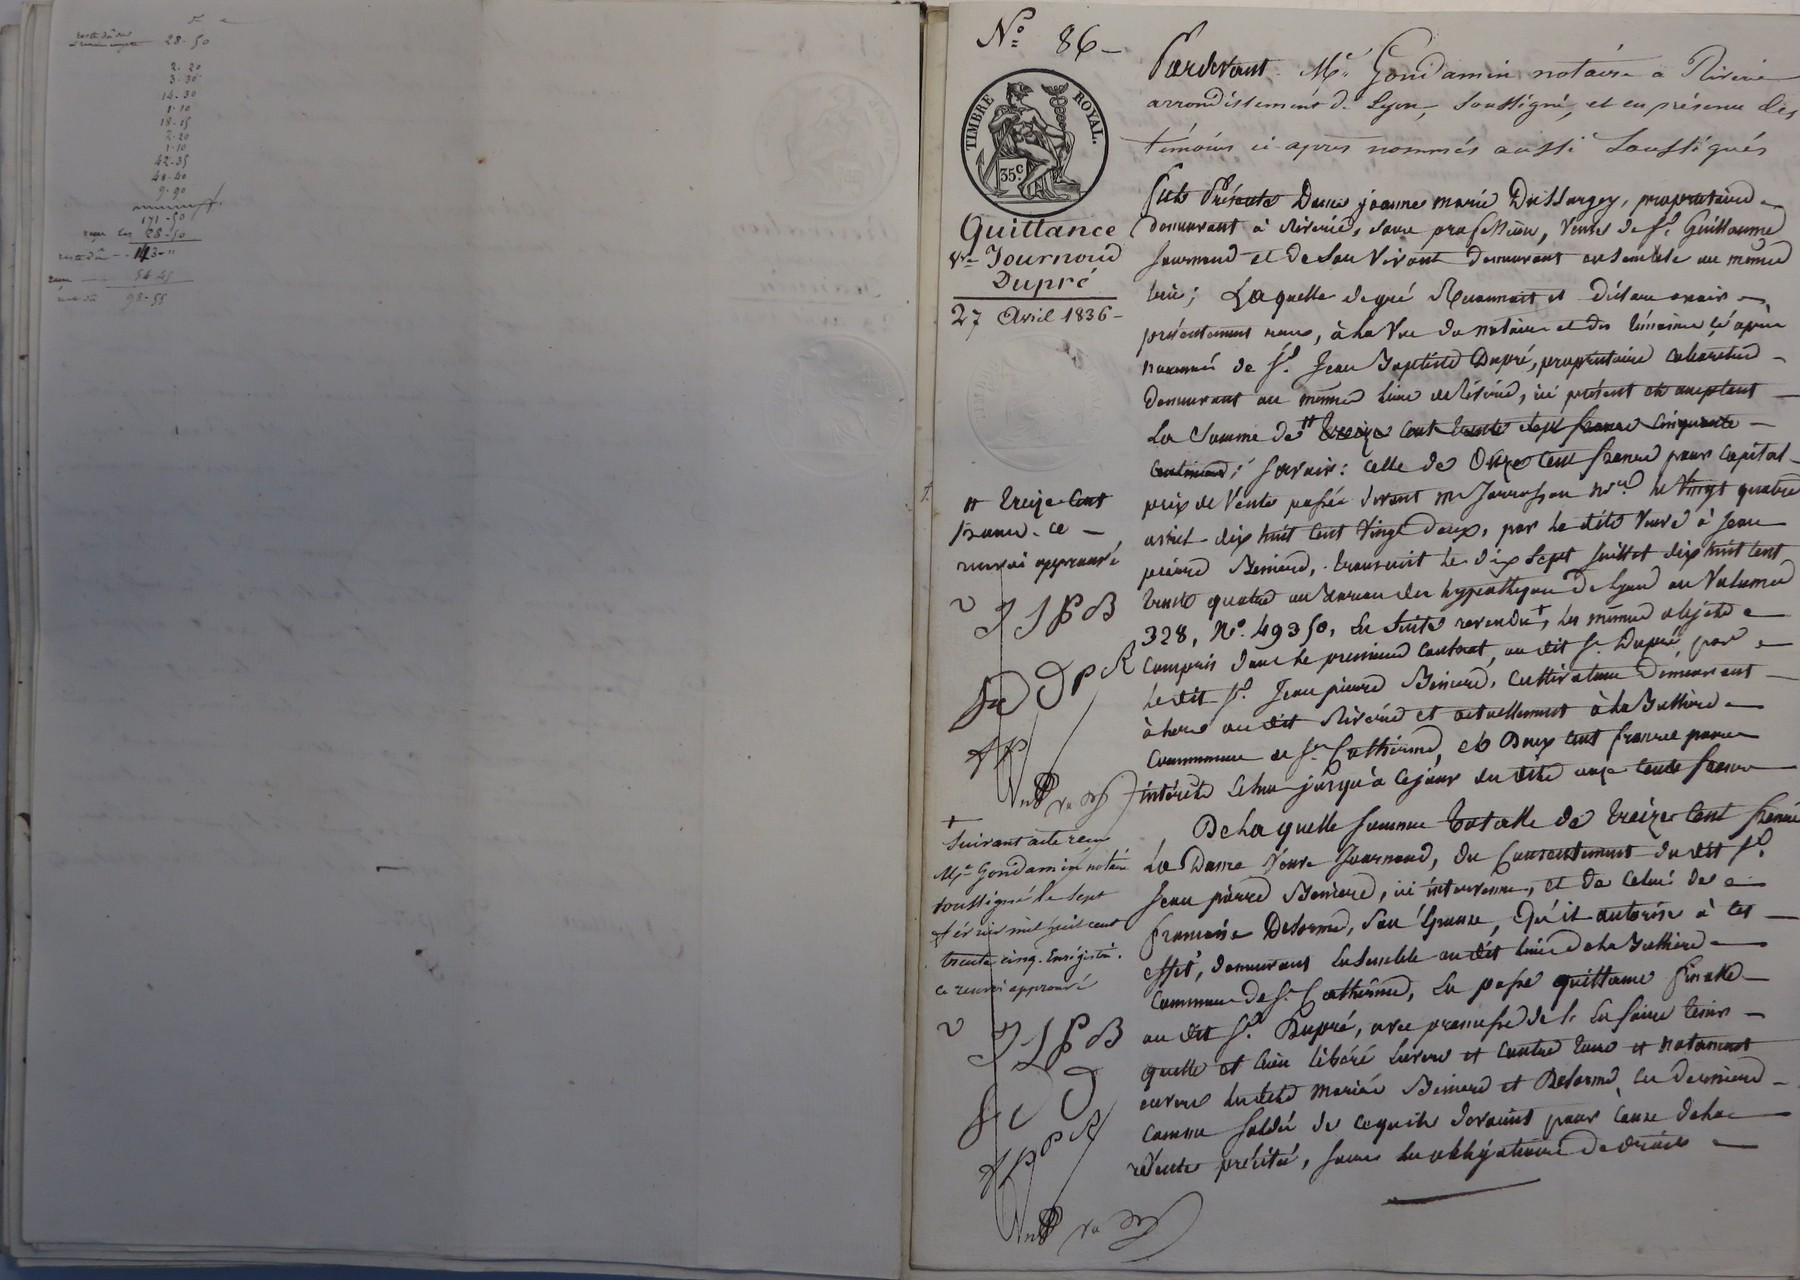 reste dû du
28-50
2-20
3-30
14-30
1-10
18-15
2-20
1-10
42-35
40-40
9-90
171-50
reçu les 28-50
reste dû 143-"
reçu 54-45
reste dû 98-55
N.º 86
TIMBRE ROYAL.
35c
Quittance
Vve Journoud
Dupré
27 Avril 1836
Pardevant Me Gondamin notaire à Riverie
arrondissement de Lyon, soussigné, et en présence des
témoins ci-après nommés aussi soussignés
Fut Présente Dame jeanne marie Dussurgey, propriétaire
demeurant à Riverie, sans profession, veuve de Sr. Guillaume
Journoud et de son vivant demeurant ensemble au même
lieu; Laquelle de gré Reconnait et déclare avoir
présentement reçu, à la vue du notaire et des témoins ci après
nommés de Sr. Jean Baptiste Dupré, propriétaire cabaretier
demeurant au même lieu de Riverie, ici présent et acceptant
La Somme de treize cent trente sept francs cinquante
centimes; savoir: celle de Onze cent francs pour capital
prix de vente passée devant me notre le vingt quatre
avril dix huit cent vingt deux, par la dite veuve à Jean
pierre Beniere, transcrit le dix sept juillet dix huit cent
trente quatre au bureau des hypothèques de Lyon au volume
328, No. 49350, En suite revendu, les mêmes objets
compris dans le premier contrat, au dit Sr. Dupré, par
le dit Sr. Jean pierre Beniere, cultivateur demeurant
alors au dit Riverie et actuellement à la
commune de Ste Catherine, et Deux cent francs pour
intérêts échus jusqu'à ce jour du dite onze cents francs
De laquelle somme totalle de treize cent francs
La Dame veuve Journoud, du consentement du dit Sr.
Jean pierre Beniere, ici intervenu, et de celui de
françoise Delorme, son épouse, qu'il autorise à cet
effet, demeurant ensemble au dit lieu de la
commune de Ste Catherine, En passe quittance finalle
au dit Sr. Dupré, avec promesse de l'en faire tenir
quitte et bien libéré envers et contre tous et notamment
envers les dits mariés Beniere et Delorme, ces derniers
comme soldés de ce qu'ils devaient pour cause de la
vente précitée, sans les obligations de droits
treize cent
francs. ce
renvoi approuvé
V J J P B
D P R
Suivant acte reçu
Me Gondamin notaire
soussigné le sept
février mil huit cent
trente cinq. Enrégistré.
ce renvoi approuvé
V J J P B